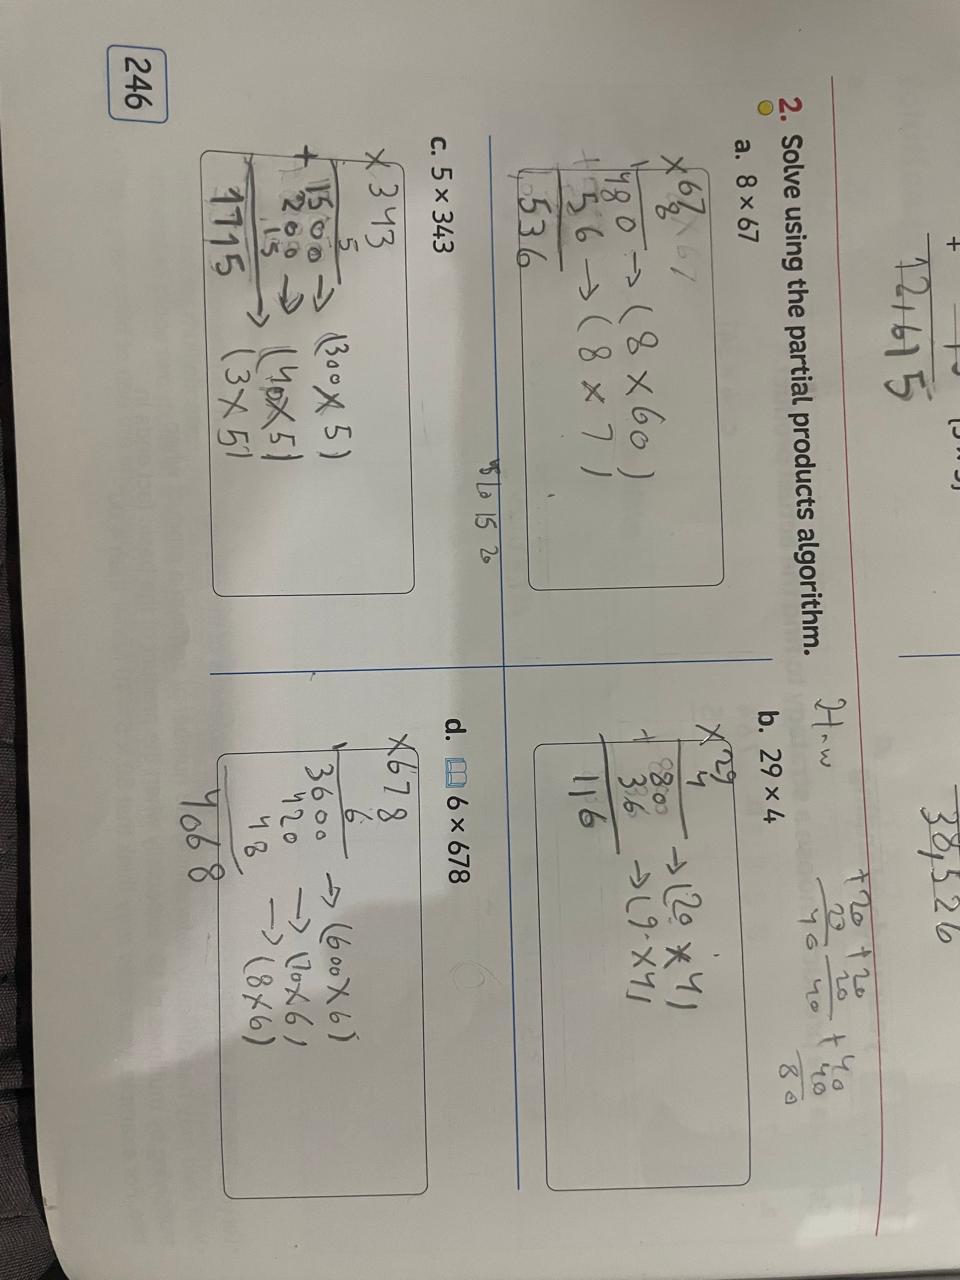 12,615
38,526
2. Solve using the partial products algorithm.
H.w
+20 +20 +40
20 20 40
40 40 80
a. 8 × 67
67
× 8
480 → (8 × 60)
+ 56 → (8 × 7)
536
b. 29 × 4
29
× 4
80 → (20 × 4)
+ 36 → (9 × 4)
116
10 15 20
c. 5 × 343
343
× 5
1500 → (300 × 5)
+ 200 → (40 × 5)
15 → (3 × 5)
1715
d. 6 × 678
678
× 6
3600 → (600 × 6)
420 → (70 × 6)
48 → (8 × 6)
4068
246